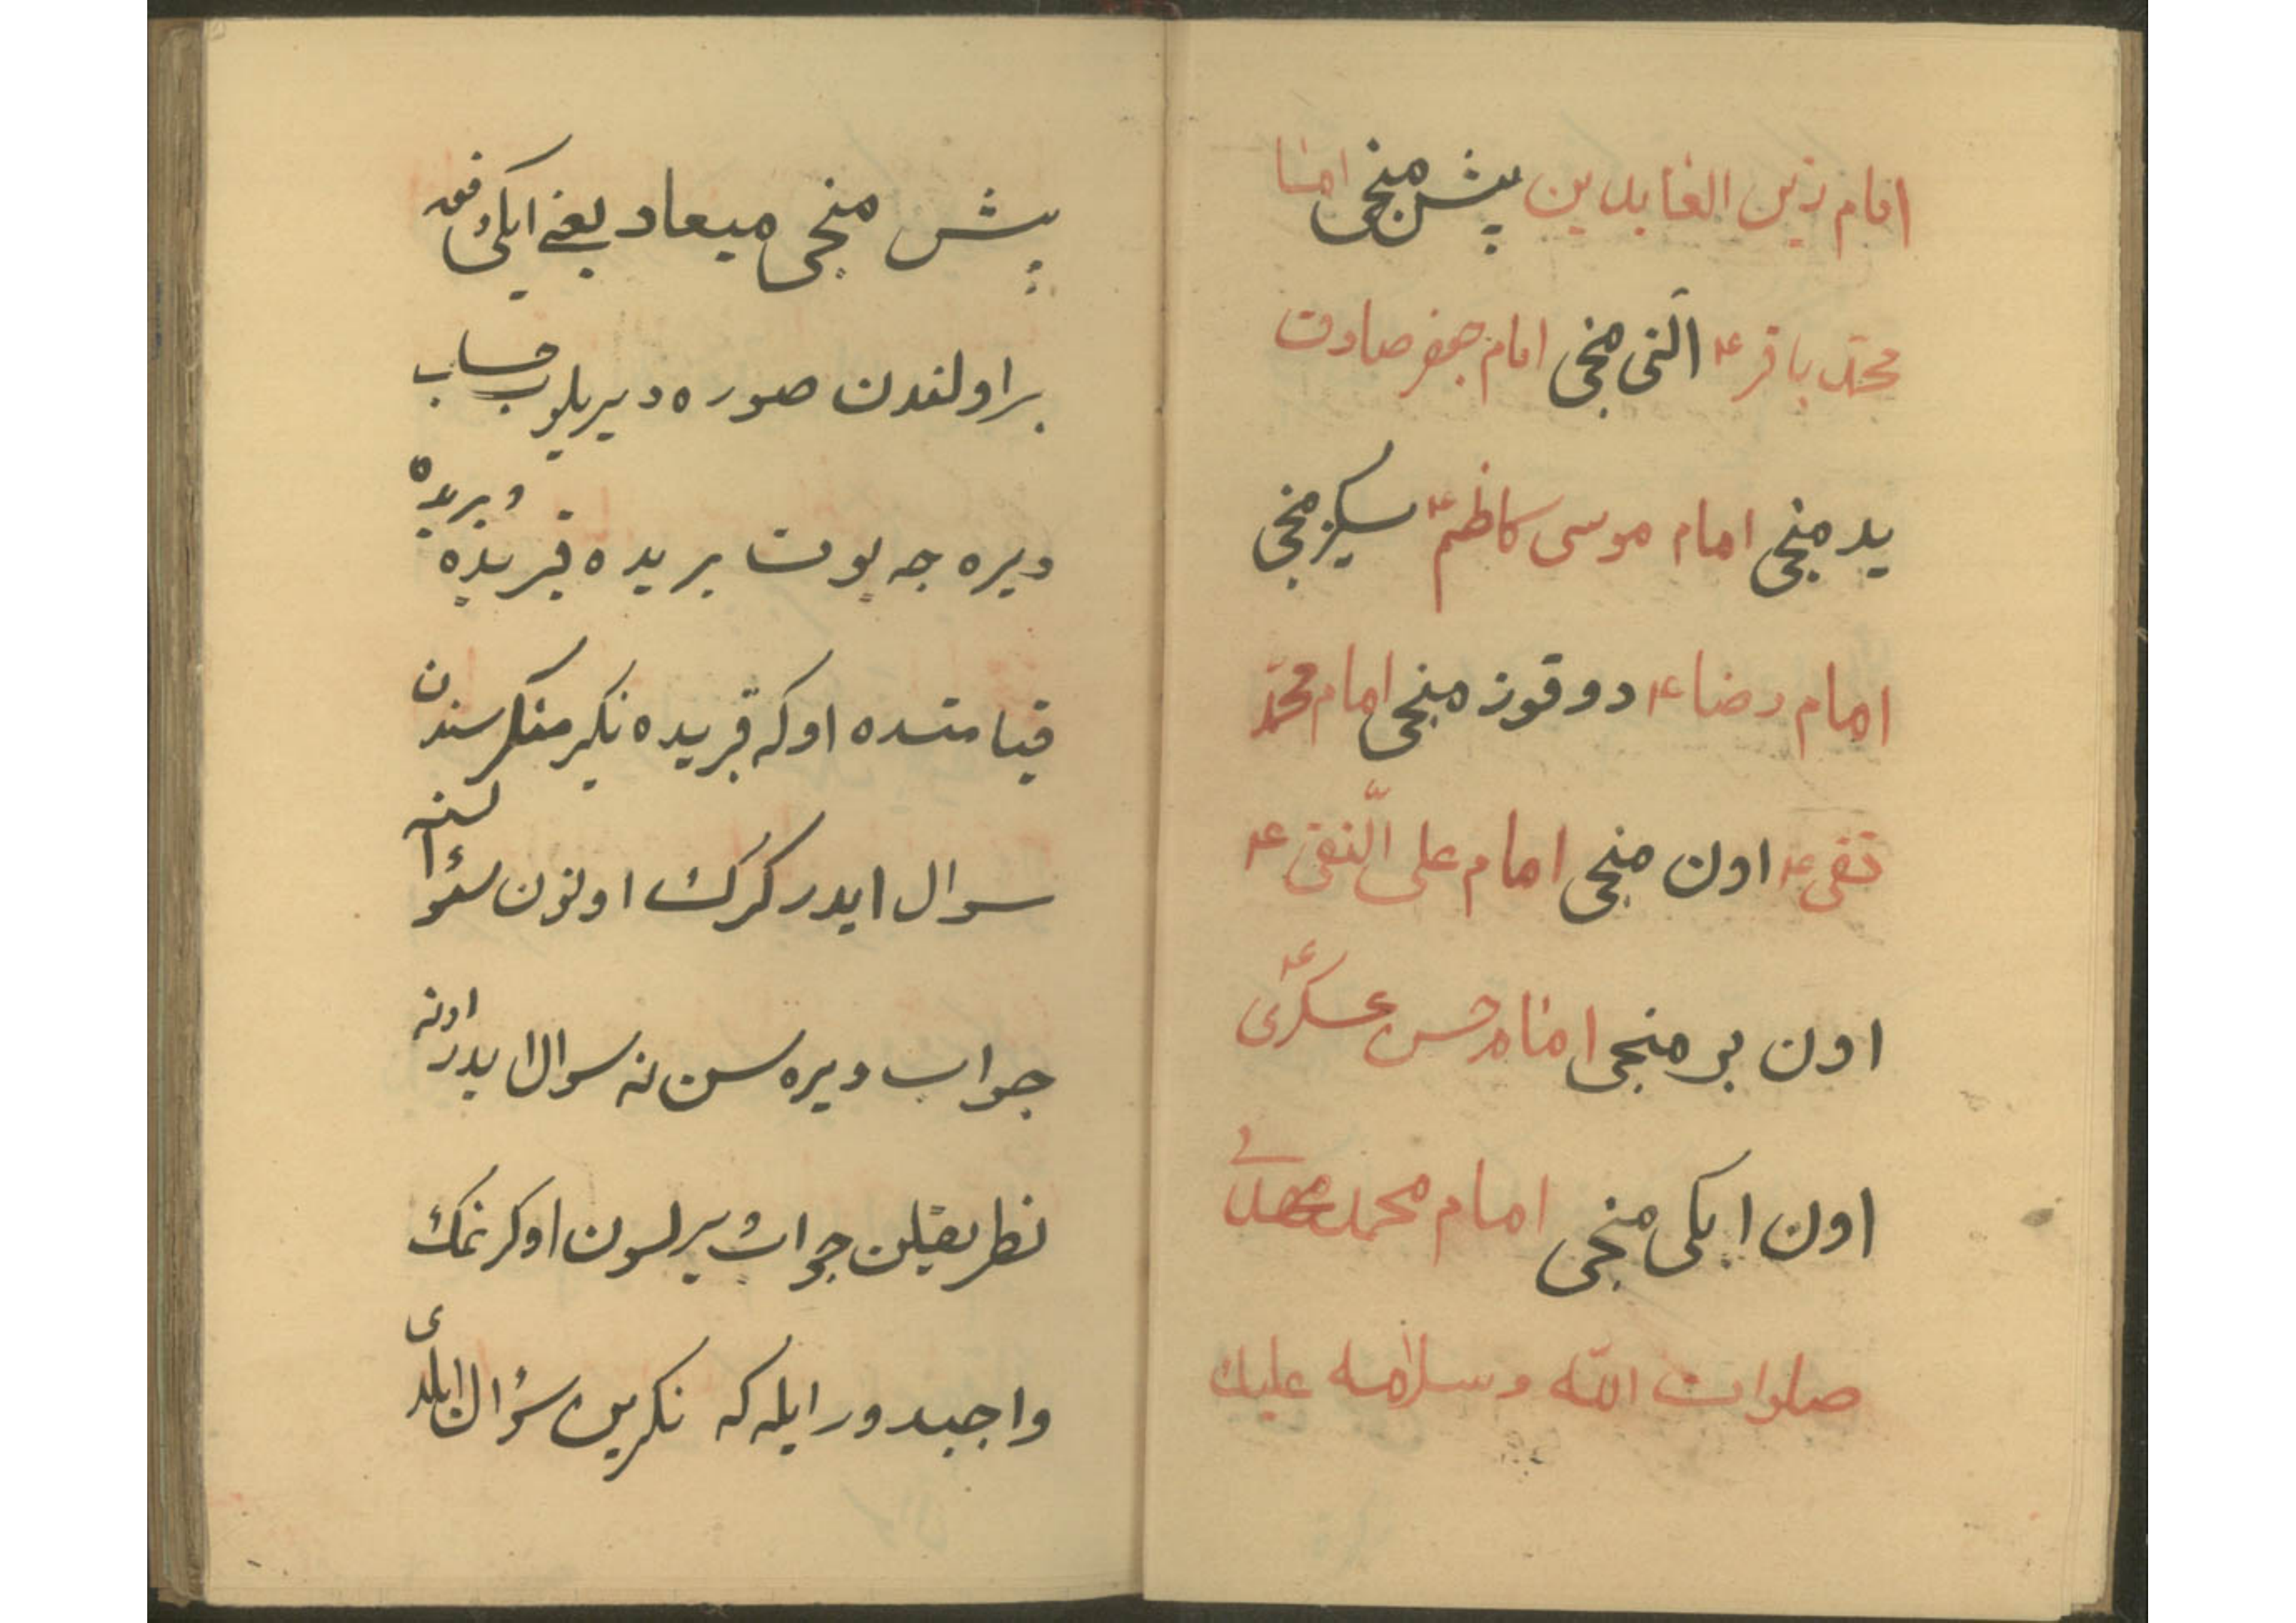 امام زین العابدین پشمنجی امام
محمد باقر ع التی منجی امام جعفر صادق
یدمنجی امام موسی کاظم ع سکیزمنجی
امام رضا ع دوقوزمنجی امام محمد
تقی ع اون منجی امام علی النقی ع
اون برمنجی امام حسن عسکری ع
اون ایکی منجی امام محمد مهدی
صلوات الله وسلامه علیك
پشمنجی میعاد یعنی ایکی دفعه
براولندن صوره دیریلوب حساب
ویره جه یوت بریده قبریده وبریده
قیامتده اوکه قبریده نکیر منکر سندن
سوال ایدر کرك اونون سئوالنه
جواب ویره سن نه سوال ایدر اونه
جواب ویرلسون اوکرنمك
واجبدور ایله که نکرین سؤال ایلدی